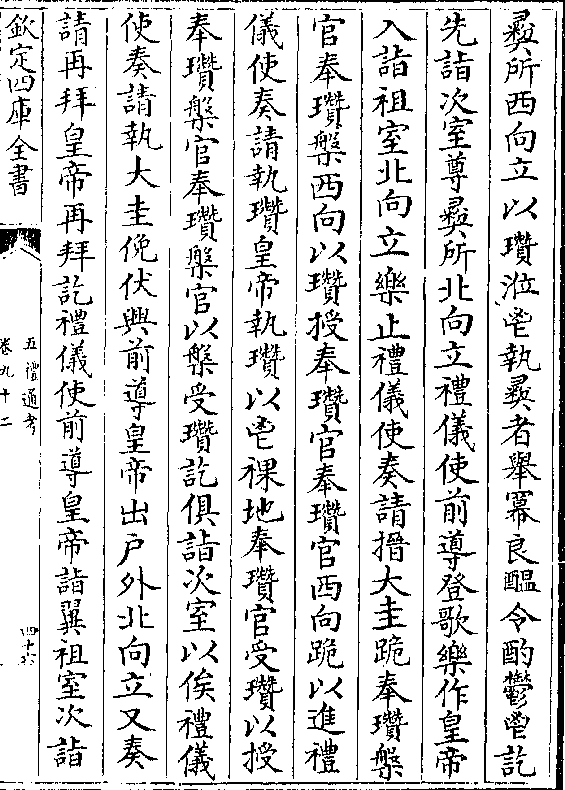 彛所西向立以瓚涖鬯執彛者舉冪良醖令酌鬱鬯訖
先詣次室尊彛所北向立禮儀使前導登歌樂作皇帝
入詣祖室北向立樂止禮儀使奏請搢大圭跪奉瓚槃
官奉瓚槃西向以瓚授奉瓚官奉瓚官西向跪以進禮
儀使奏請執瓚皇帝執瓚以鬯祼地奉瓚官受瓚以授
奉瓚槃官奉瓚槃官以槃受瓚訖俱詣次室以俟禮儀
使奏請執大圭俛伏興前導皇帝出户外北向立又奏
請再拜皇帝再拜訖禮儀使前導皇帝詣翼祖室次詣
欽定四庫全書
五禮通考
卷九十二
四十六